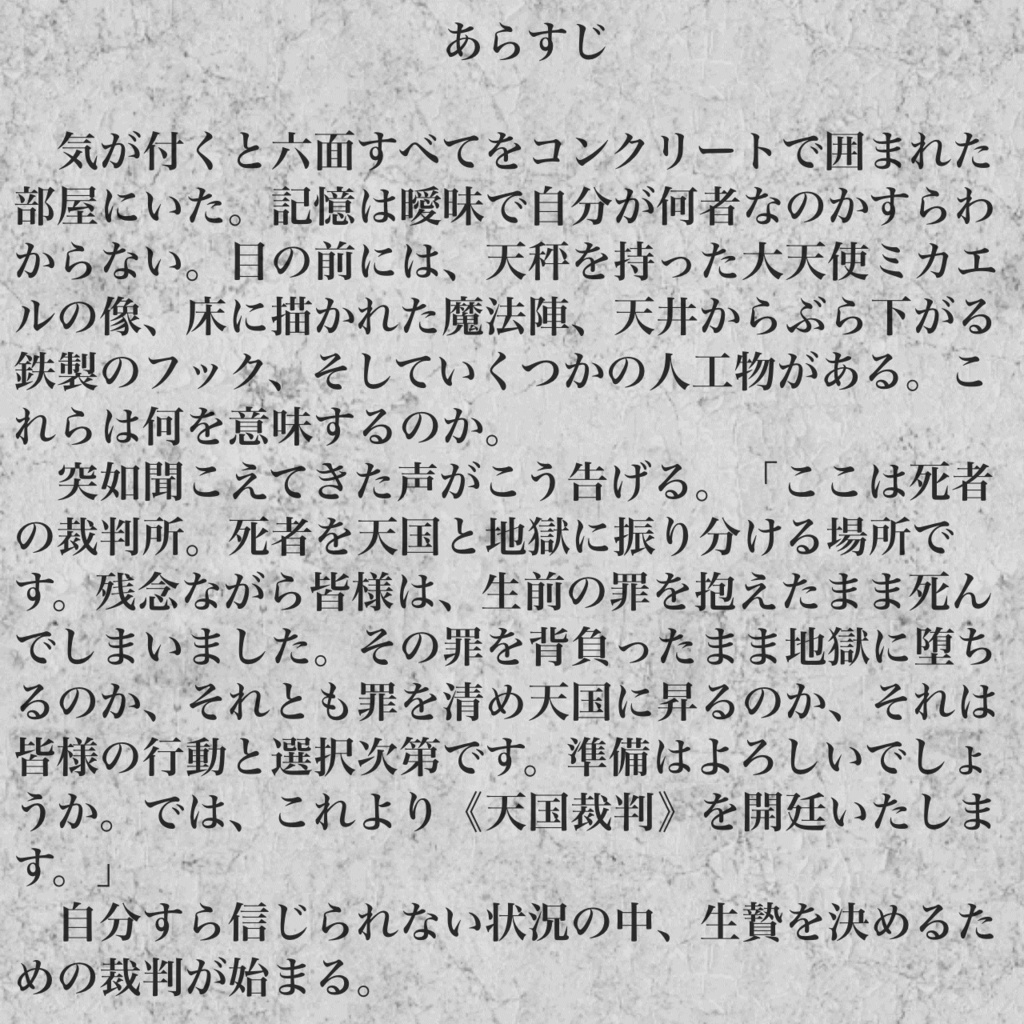 あらすじ
　気が付くと六面すべてをコンクリートで囲まれた
部屋にいた。記憶は曖昧で自分が何者なのかすらわ
からない。目の前には、天秤を持った大天使ミカエ
ルの像、床に描かれた魔法陣、天井からぶら下がる
鉄製のフック、そしていくつかの人工物がある。こ
れらは何を意味するのか。
　突如聞こえてきた声がこう告げる。「ここは死者
の裁判所。死者を天国と地獄に振り分ける場所で
す。残念ながら皆様は、生前の罪を抱えたまま死ん
でしまいました。その罪を背負ったまま地獄に堕ち
るのか、それとも罪を清め天国に昇るのか、それは
皆様の行動と選択次第です。準備はよろしいでしょ
うか。では、これより《天国裁判》を開廷いたしま
す。」
　自分すら信じられない状況の中、生贄を決めるた
めの裁判が始まる。